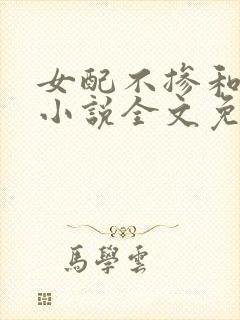 女配不掺和
小说全文免
馬學雲